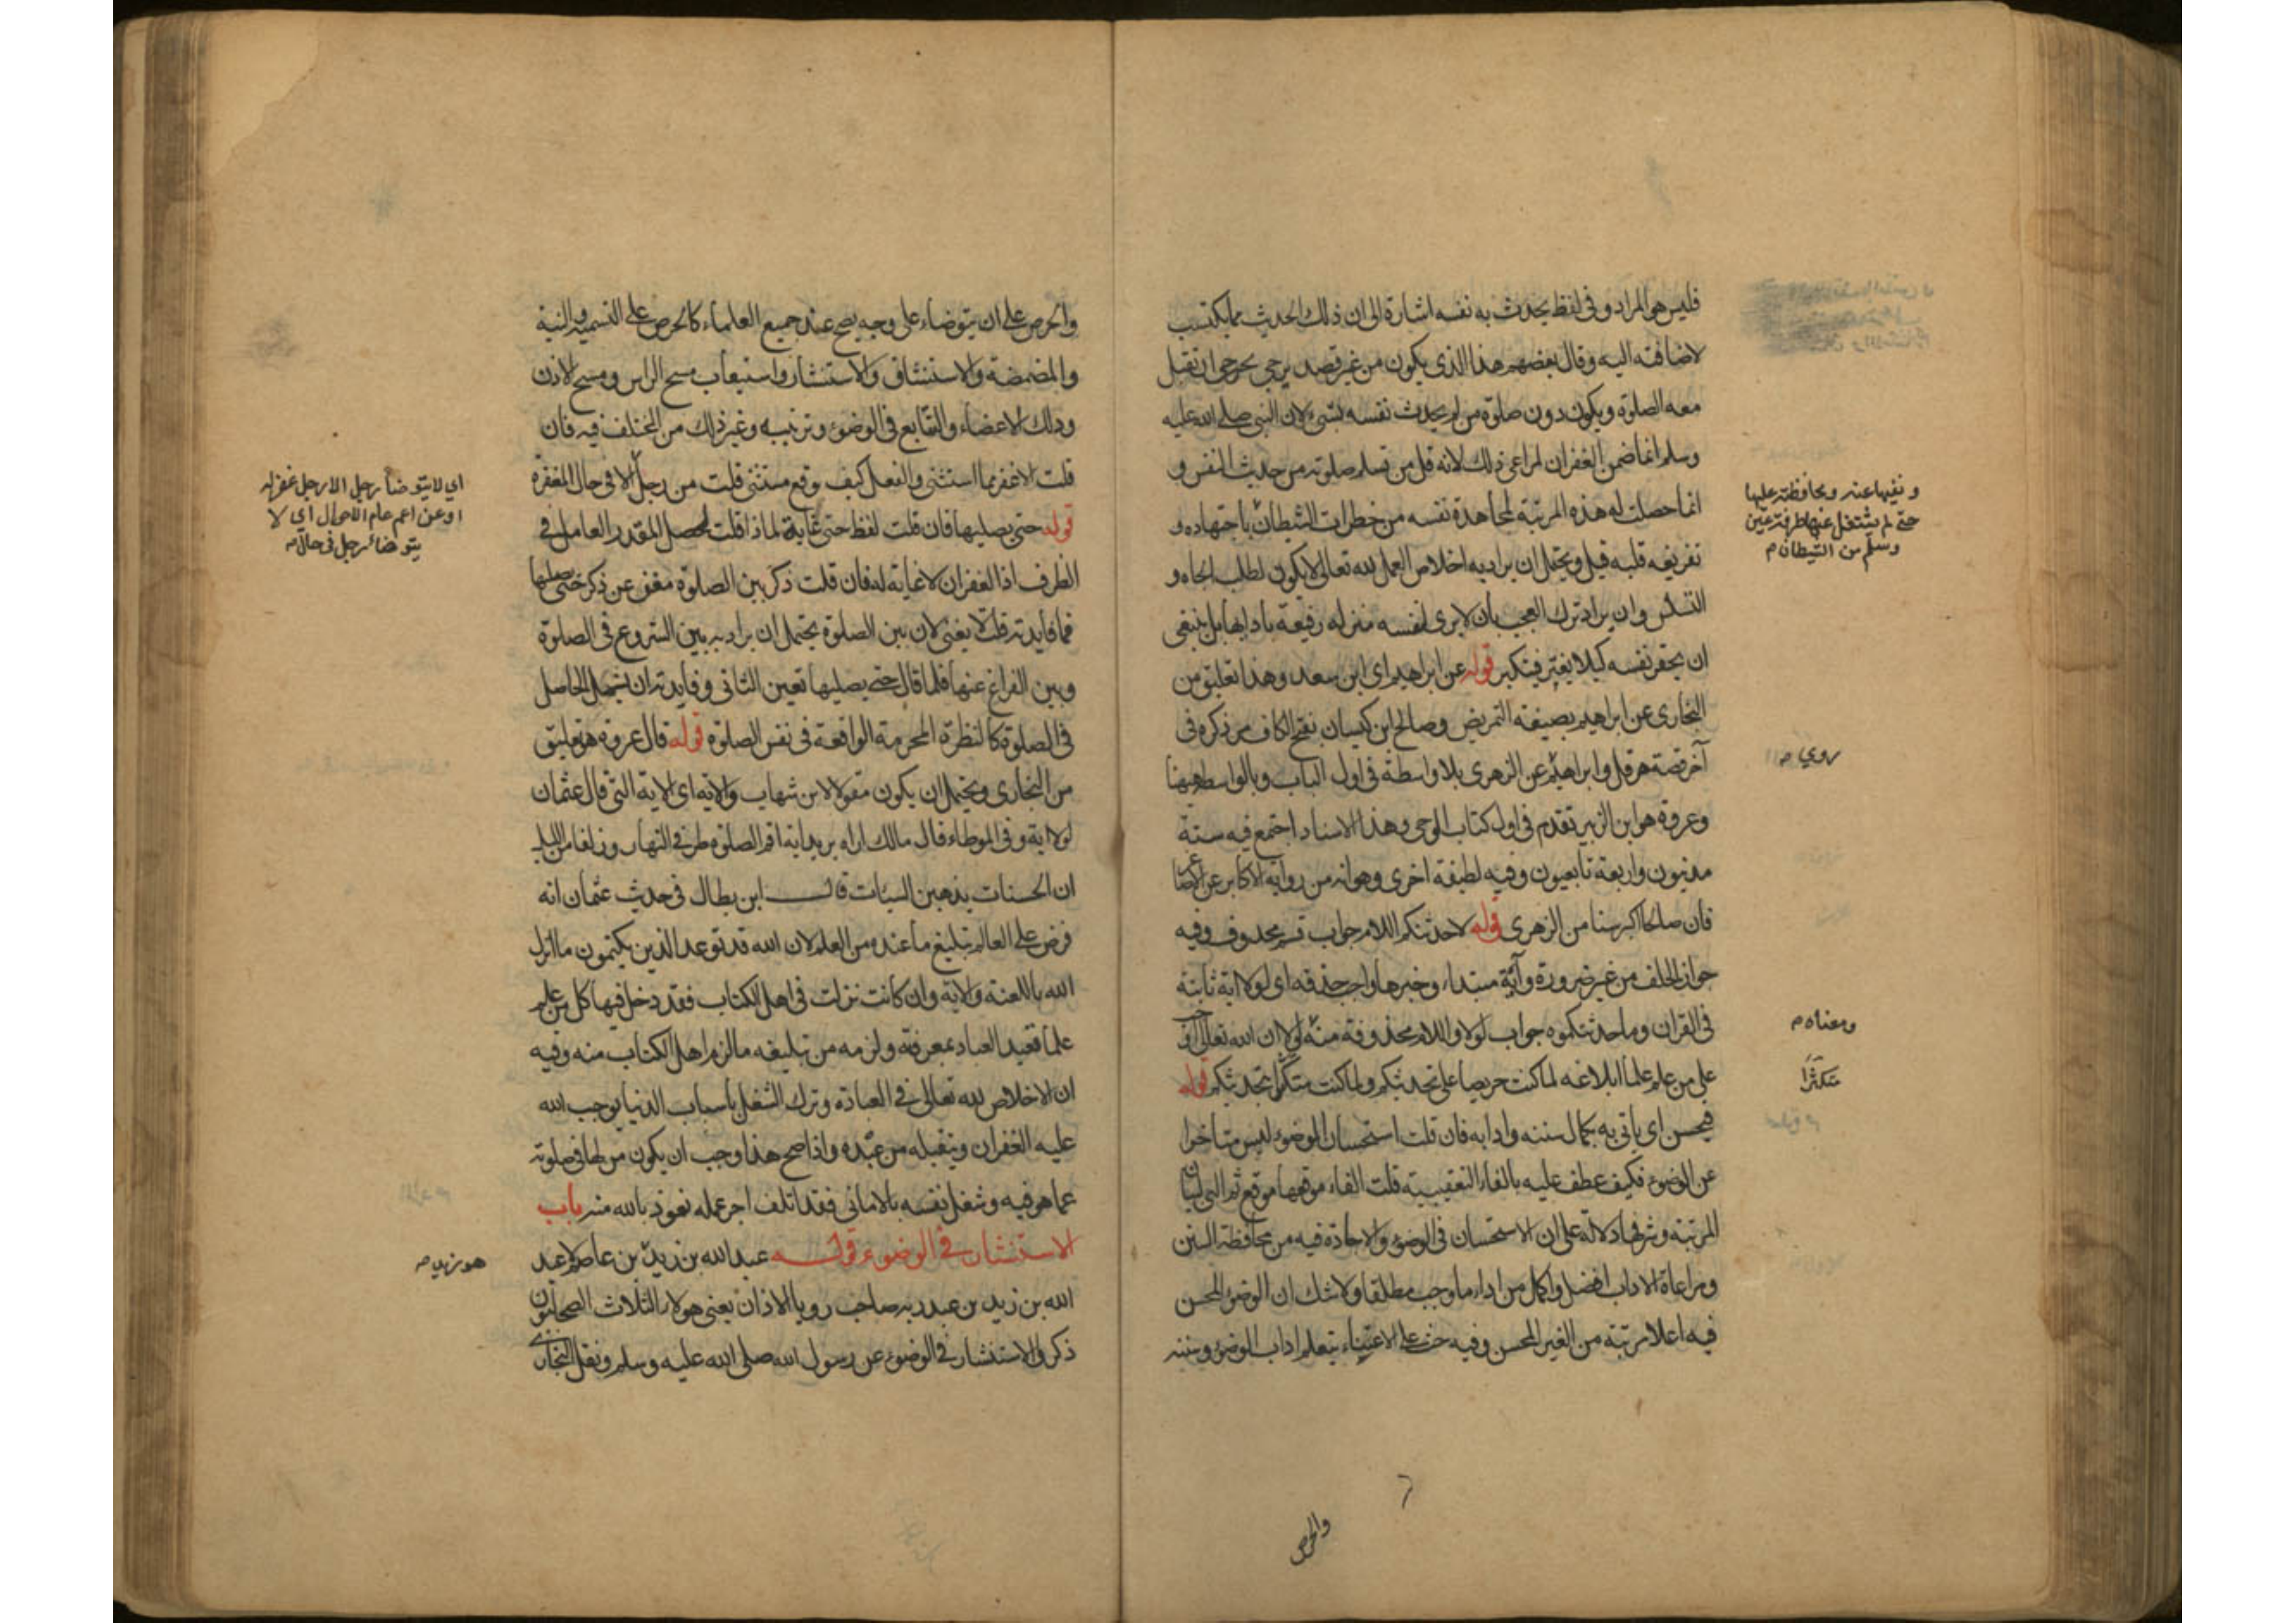 فليس هو المراد وفي لفظ يحدث به نفسه اشارة الى ان ذلك الحديث مما يكتسب
لاضافته اليه وقال بعضهم هذا الذي يكون من غير قصد يرجى ان تقبل
معه الصلوة ويكون دون صلوة من لم يحدث نفسه بشئ لان النبي صلى الله عليه
وسلم انما ضمن الغفران لمراعى ذلك لانه قل من تسلم صلوته من حديث النفس و
انما حصلت له هذه المرتبة لمجاهدة نفسه من خطرات الشيطان باجتهاده و
تفريغه قلبه قيل ويحتمل ان يراد به اخلاص العمل لله تعالى لا يكون لطلب الجاه و
وان يراد ترك العجب بأن لا يرى لنفسه منزلة رفيعة بادابها بل ينبغي
ان يحقر نفسه كيلا يغتر فيتكبر قوله عن ابراهيم اي ابن سعد وهذا تعليق من
البخاري عن ابراهيم بصيغة التمريض وصالح ابن كيسان بفتح الكاف مر ذكره في
آخر قصة هرقل وابراهيم عن الزهري بلا واسطة في اول الباب وبالواسطة ههنا
وعروة هو ابن الزبير تقدم في اول كتاب الوحي وهذا الاسناد اجتمع فيه ستة
مدنيون واربعة تابعيون وفيه لطيفة اخرى وهو انه من رواية الاكابر عن الاصا
فان صالحا اكبر سنا من الزهري قوله لاحدثنكم اللام جواب قسم محذوف وفيه
جواز الحلف من غير ضرورة وآية مبتداء وخبرها واجب حذفه اي لولا اية ثابتة
في القران وما حدثتكموه جواب لولا واللام محذوفة منه لولا ان الله تعالى
على من علم علما ابلاغه لما كنت حريصا على تحديثكم ولما كنت متكثرا بتحديثكم قوله
فيحسن اي ياتي به بكمال سننه وادابه فان قلت استحسان الوضوء ليس متأخرا
عن الوضوء فكيف عطف عليه بالفاء التعقيبية قلت الفاء موقعها موقع ثم التي لبيان
المرتبة وشرفها دلالة على ان الاستحسان في الوضوء والاجادة فيه من محافظة السنن
ومراعاة الاداب افضل واكمل من اداء ما وجب مطلقا ولا شك ان الوضوء المحسن
فيه اعلا رتبة من الغير المحسن وفيه حث على الاعتناء بتعلم اداب الوضوء وسننه
والحرص
ونفيها عنه ومحافظته عليها
حتى لم يشتغل عنها طرفة عين
وسلم من الشيطان م
روي م
ومعناه م
متكثرا
والحرص على ان يتوضاء على وجه يصح عند جميع العلماء كالحرص على التسمية والنية
والمضمضة والاستنشاق والاستنثار واستيعاب مسح الراس ومسح الاذن
ودلك الاعضاء والتتابع في الوضوء وترتيبه وغير ذلك من المختلف فيه فان
قلت الا غفر مما استثنى والفعل كيف وقع مستثنى قلت من رجل الا في حال المغفرة
قوله حتى يصليها فان قلت لفظ حتى غاية لماذا قلت لحصل المقدر العامل في
الظرف اذ الغفران لا غاية له فان قلت ذكر بين الصلوة مغن عن ذكر حتى يصليها
فما فايدته قلت لا يغني لان بين الصلوة يحتمل ان يراد به بين الشروع في الصلوة
وبين الفراغ عنها فلما قال حتى يصليها تعين الثاني وفايدته ان يشمل الحاصل
في الصلوة كالنظرة المحرمة الواقعة في نفس الصلوة قوله قال عروة هو تعليق
من البخاري ويحتمل ان يكون مقولا لابن شهاب والاية اي الاية التي قال عثمان
لولا اية وفي الموطاء قال مالك اراه يريد اية اقم الصلوة طرفي النهار وزلفا من الليل
ان الحسنات يذهبن السيات قال ابن بطال في حديث عثمان انه
فرض على العالم تبليغ ما عنده من العلم لان الله قد توعد الذين يكتمون ما انزل
الله باللعنة والاية وان كانت نزلت في اهل الكتاب فقد دخل فيها كل من علم
علما تعبد العباد بمعرفته ولزمه من تبليغه ما لزم اهل الكتاب منه وفيه
ان الاخلاص لله تعالى في العبادة وترك الشغل بأسباب الدنيا يوجب الله
عليه الغفران ويتقبله من عبده واذا صح هذا وجب ان يكون من لها في صلوته
عما هو فيه وشغل نفسه بالاماني فقد اتلف اجر عمله نعوذ بالله منه باب
الاستنثار في الوضوء قوله عبد الله بن زيد بن عاصم لا عبد
الله بن زيد بن عبد ربه صاحب رويا الاذان يعني هولاء الثلاث الصحابيون
ذكروا الاستنثار في الوضوء عن رسول الله صلى الله عليه وسلم ونقل البخاري
اي لا يتوضأ رجل الا رجل غفر له
او عن اعم عام الاحوال اي لا
يتوضأ رجل في حال م
هو زيد م